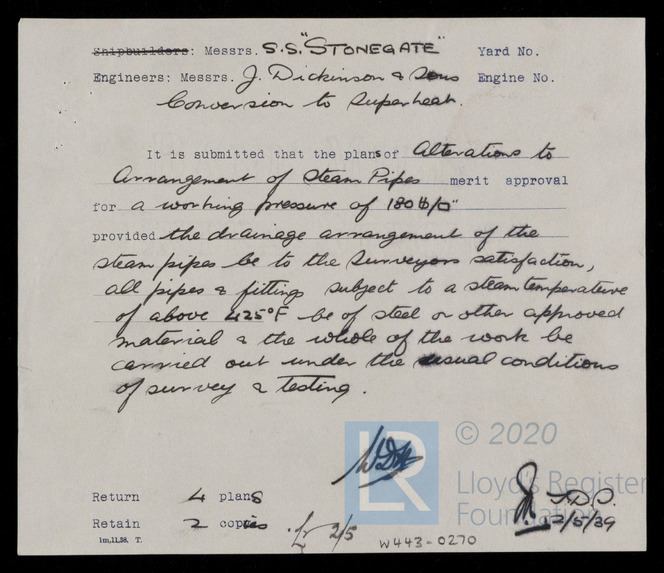 Shipbuilders: Messrs. S.S. "STONEGATE" Yard No.
Engineers: Messrs. J. Dickinson & Sons Engine No.
Conversion to Superheat.
It is submitted that the plans of Alterations to
Arrangement of Steam Pipes merit approval
for a working pressure of 180 lb/□"
provided the drainage arrangement of the
steam pipes be to the Surveyors satisfaction,
all pipes & fittings subject to a steam temperature
of above 425°F be of steel or other approved
material & the whole of the work be
carried out under the usual conditions
of survey & testing.
© 2020
Lloyd's Register
Foundation
Return 4 plans
Retain 2 copies
J.D.D.
2/5/39
2/5
W443-0270
1m,11.38. T.
LR